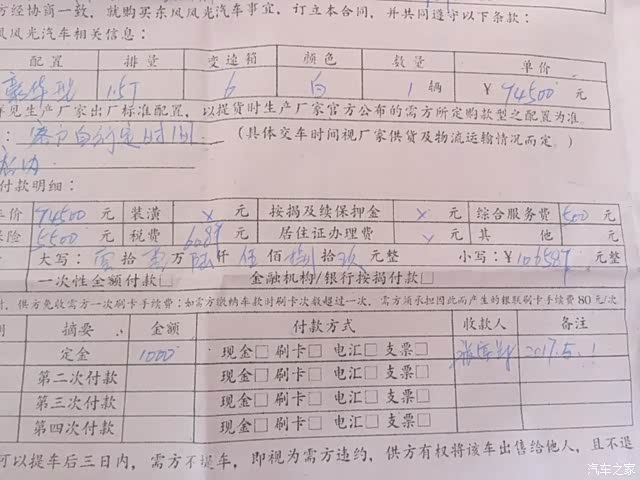 方经协商一致，就购买东风风光汽车事宜，订立本合同，并共同遵守以下条款：
风风光汽车相关信息：
配置 排量 变速箱 颜色 数量 单价
豪华型 1.5T 6 白 1 辆 ￥94500 元
详见生产厂家出厂标准配置，以提货时生产厂家官方公布的需方所定购款型之配置为准
： 客户自行定时间 （具体交车时间视厂家供货及物流运输情况而定。）
店内
付款明细：
车价 94500 元 装潢 × 元 按揭及续保押金 × 元 综合服务费 500 元
保险 5500 元 税费 6087 元 居住证办理费 × 元 其他 元
大写：壹拾 万 陆仟 伍佰捌拾 元整 小写：￥106587 元整
一次性全额付款□ 金融机构/银行按揭付款□
时，供方免收需方一次刷卡手续费；如需方缴纳车款时刷卡次数超过一次，需方须承担因此而产生的银联刷卡手续费80元/次
期 摘要 金额 付款方式 收款人 备注
定金 1000 现金□ 刷卡□ 电汇□ 支票□ 2017.5.1
第二次付款 现金□ 刷卡□ 电汇□ 支票□
第三次付款 现金□ 刷卡□ 电汇□ 支票□
第四次付款 现金□ 刷卡□ 电汇□ 支票□
可以提车后三日内，需方不提车，即视为需方违约，供方有权将该车出售给他人，且不退
汽车之家